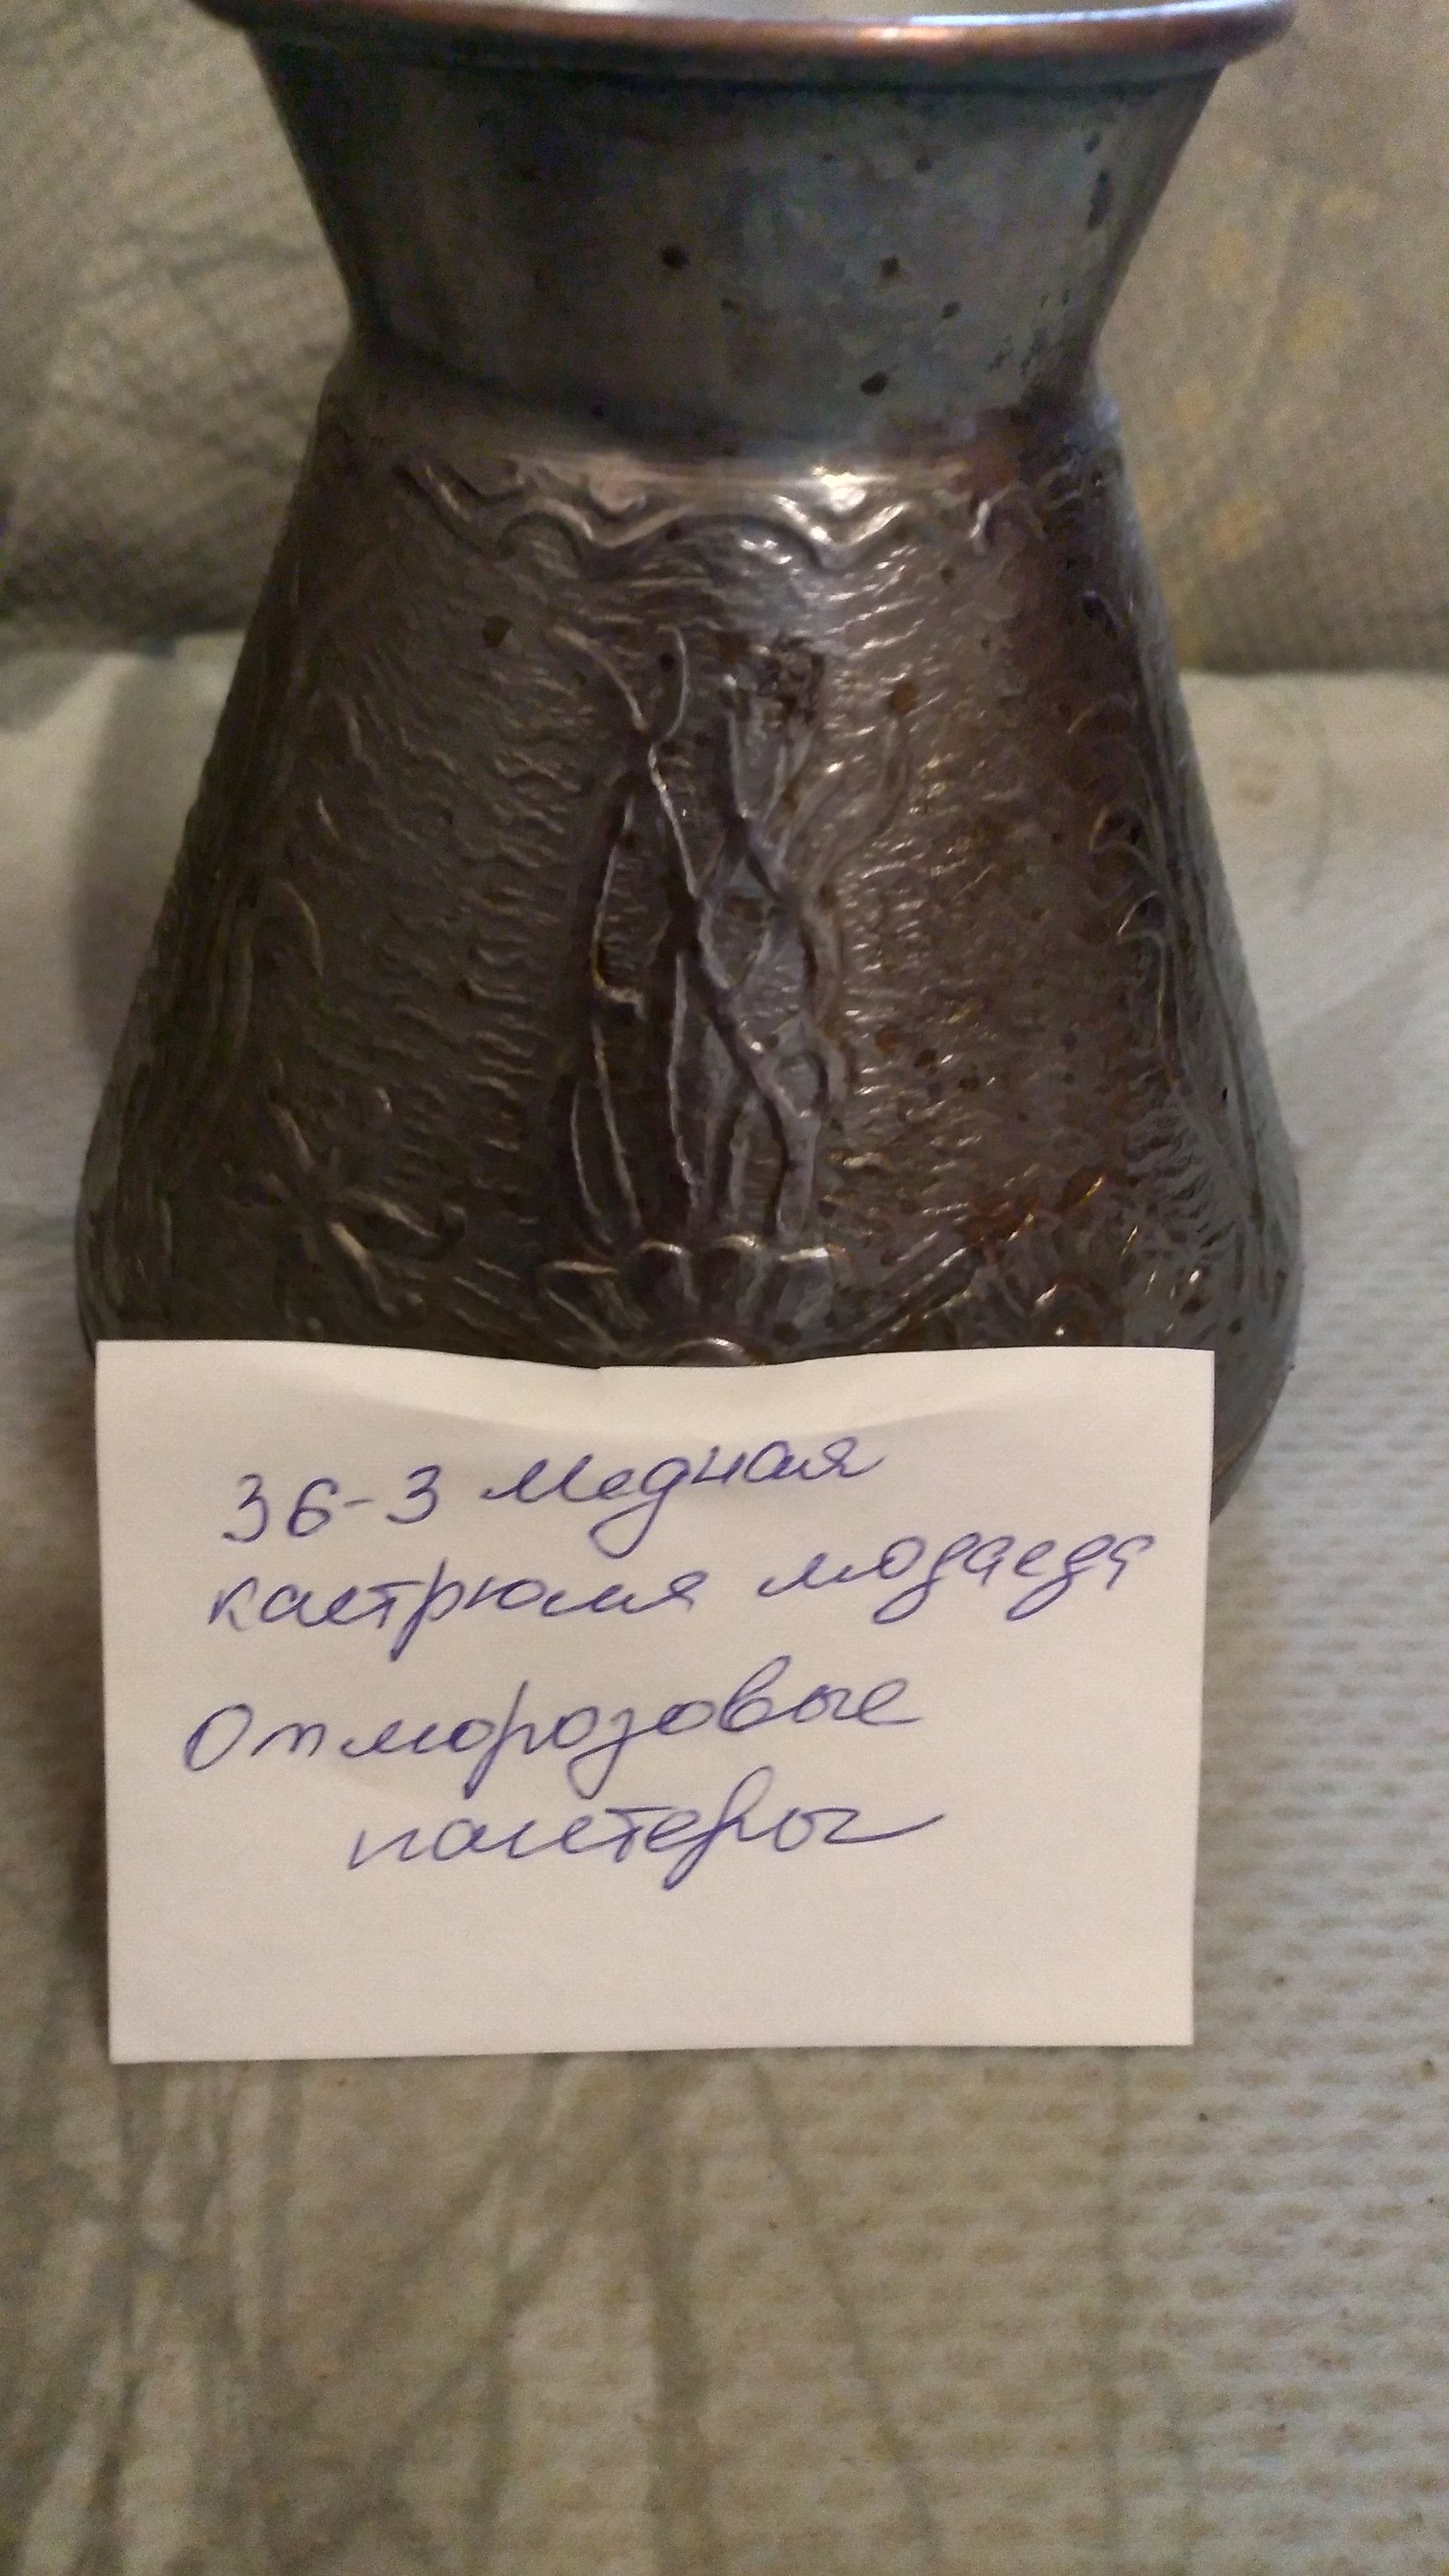 36-3 Медная
кастрюля людоеда
Отморозовые
пантеры